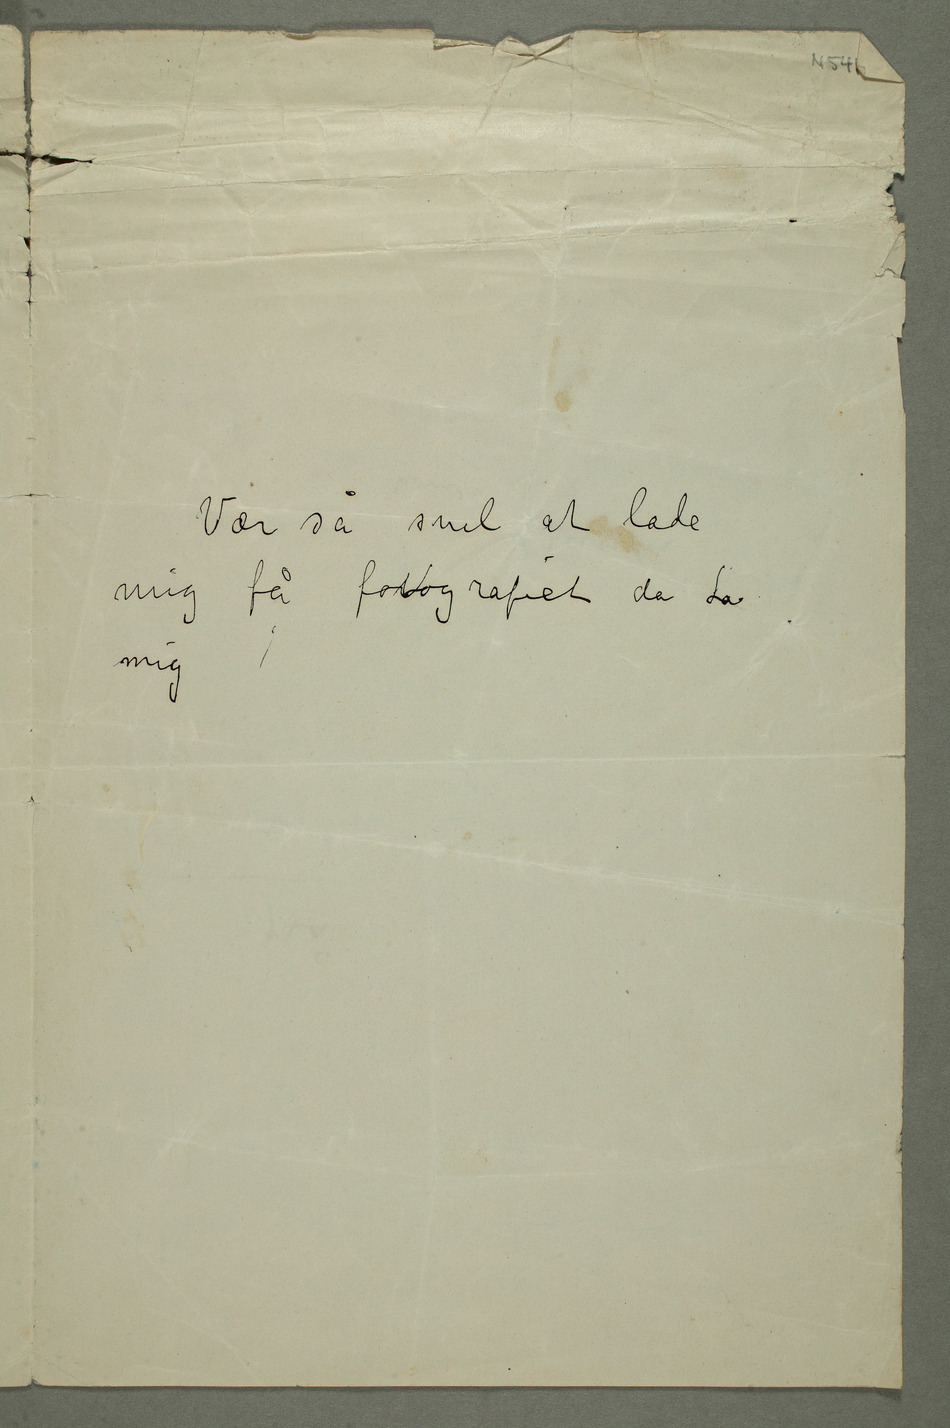 N 54
Vær så snel at lade
mig få fotografiet da La
mig